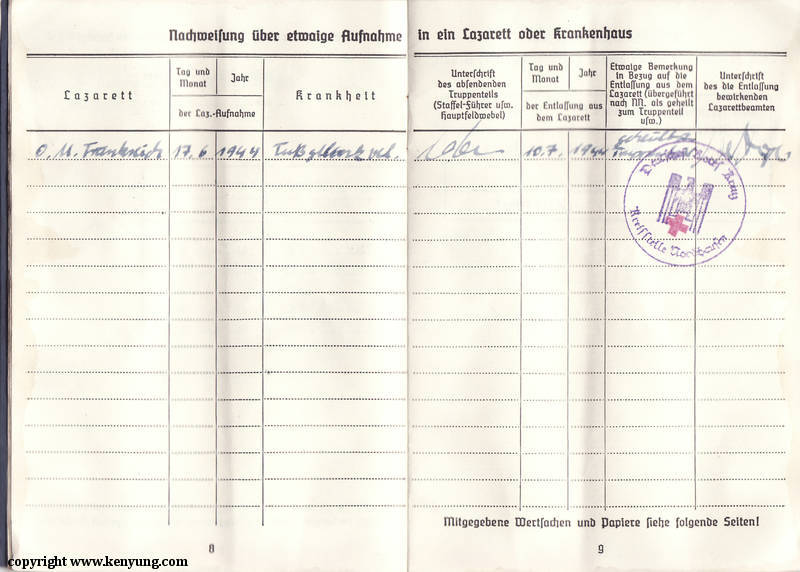 Nachweisung über etwaige Aufnahme in ein Lazarett oder Krankenhaus
Lazarett
Tag und
Monat
Jahr
der Laz.-Aufnahme
Krankheit
Unterschrift
des absendenden
Truppenteils
(Staffel-Führer usw.
Hauptfeldwebel)
Tag und
Monat
Jahr
der Entlassung aus
dem Lazarett
Etwaige Bemerkung
in Bezug auf die
Entlassung aus dem
Lazarett (übergeführt
nach NN. als geheilt
zum Truppenteil
usw.)
Unterschrift
des die Entlassung
bewirkenden
Lazarettbeamten
O. U. Frankreich 17.6 1944 10.7. 1944
Deutsches Rotes Kreuz
Kreisstelle Nordhausen
Mitgegebene Wertsachen und Papiere siehe folgende Seiten!
8
9
copyright www.kenyung.com